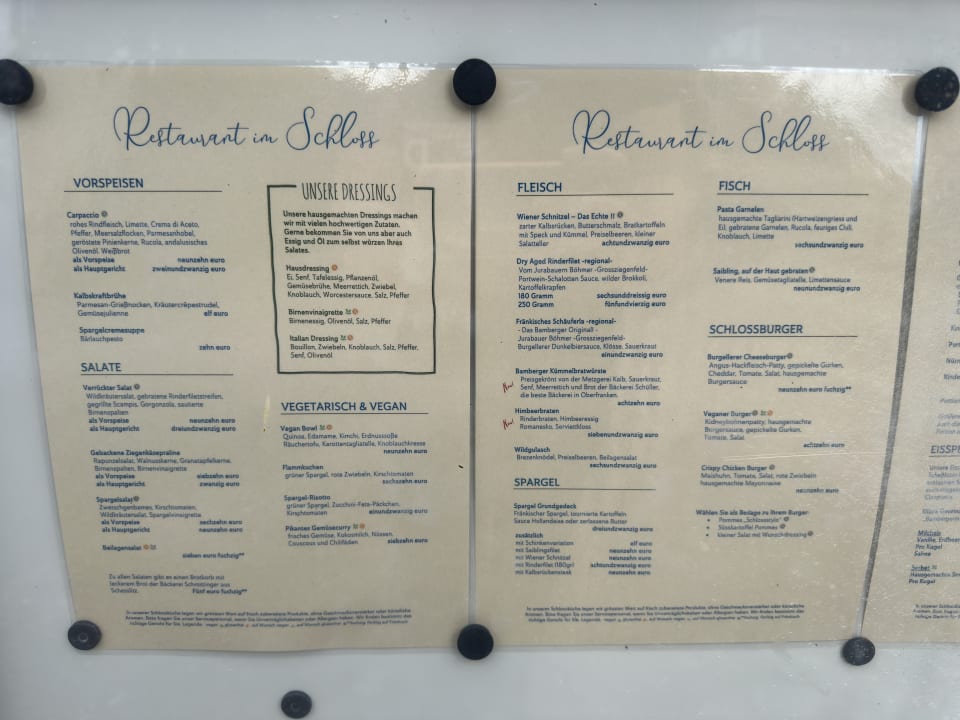 Restaurant im Schloss
VORSPEISEN
Carpaccio
rohes Rindfleisch, Limette, Crema di Aceto,
Pfeffer, Meersalzflocken, Parmesanhobel,
geröstete Pinienkerne, Rucola, andalusisches
Olivenöl, Weißbrot
als Vorspeise neunzehn euro
als Hauptgericht zweiundzwanzig euro
Kalbskraftbrühe
Parmesan-Grießnocken, Kräutercrêpestrudel,
Gemüsejulienne elf euro
Spargelcremesuppe
Bärlauchpesto
zehn euro
SALATE
Verrückter Salat
Wildkräutersalat, gebratene Rinderfiletstreifen,
gegrillte Scampis, Gorgonzola, sautierte
Birnenspalten
als Vorspeise neunzehn euro
als Hauptgericht dreiundzwanzig euro
Gebackene Ziegenkäsepraline
Rapunzelsalat, Walnusskerne, Granatapfelkerne,
Birnenspalten, Birnenvinaigrette
als Vorspeise siebzehn euro
als Hauptgericht zwanzig euro
Spargelsalat
Zwetschgenbames, Kirschtomaten,
Wildkräutersalat, Spargelvinaigrette
als Vorspeise sechzehn euro
als Hauptgericht neunzehn euro
Beilagensalat
sieben euro fuchzig**
Zu allen Salaten gibt es einen Brotkorb mit
leckerem Brot der Bäckerei
Fünf euro fuchzig**
UNSERE DRESSINGS
Unsere hausgemachten Dressings machen
wir mit vielen hochwertigen Zutaten.
Gerne bekommen Sie von uns aber auch
Essig und Öl zum selbst würzen Ihres
Salates.
Hausdressing
Ei, Senf, Tafelessig, Pflanzenöl,
Gemüsebrühe, Meerrettich, Zwiebel,
Knoblauch, Worcestersauce, Salz, Pfeffer
Birnenvinaigrette
Birnenessig, Olivenöl, Salz, Pfeffer
Italian Dressing
Bouillon, Zwiebeln, Knoblauch, Salz, Pfeffer,
Senf, Olivenöl
VEGETARISCH & VEGAN
Vegan Bowl
Quinoa, Edamame, Kimchi, Erdnusssoße
Räuchertofu, Karottentagliatelle, Knoblauchkresse
neunzehn euro
Flammkuchen
grüner Spargel, rote Zwiebeln, Kirschtomaten
sechszehn euro
Spargel-Risotto
grüner Spargel, Zucchini-Feta-Päckchen,
Kirschtomaten einundzwanzig euro
Pikantes Gemüsecurry
frisches Gemüse, Kokosmilch, Nüssen,
Couscous und Chilifäden siebzehn euro
Restaurant im Schloss
FLEISCH
Wiener Schnitzel – Das Echte !!
zarter Kalbsrücken, Butterschmalz, Bratkartoffeln
mit Speck und Kümmel, Preiselbeeren, kleiner
Salatteller achtundzwanzig euro
Dry Aged Rinderfilet -regional-
Vom Jurabauern Böhmer -Grossziegenfeld-
Portwein-Schalotten Sauce, wilder Brokkoli,
Kartoffelkrapfen
180 Gramm sechsunddreissig euro
250 Gramm fünfundvierzig euro
Fränkisches Schäuferla -regional-
- Das Bamberger Original! -
Jurabauer Böhmer -Grossziegenfeld-
Burgellerer Dunkelbiersauce, Klösse, Sauerkraut
einundzwanzig euro
New Bamberger Kümmelbratwürste
Preisgekrönt von der Metzgerei Kalb, Sauerkraut,
Senf, Meerrettich und Brot der Bäckerei Schüller,
die beste Bäckerei in Oberfranken.
achtzehn euro
Himbeerbraten
New Rinderbraten, Himbeeressig
Romanesko, Serviettkloss
siebenundzwanzig euro
Wildgulasch
Brezenknödel, Preiselbeeren, Beilagensalat
sechsundzwanzig euro
SPARGEL
Spargel Grundgedeck
Fränkischer Spargel, tournierte Kartoffeln
Sauce Hollandaise oder zerlassene Butter
dreiundzwanzig euro
zusätzlich
mit Schinkenvariation elf euro
mit Saiblingsfilet neunzehn euro
mit Wiener Schnitzel neunzehn euro
mit Rinderfilet (180gr) achtundzwanzig euro
mit Kalbsrückensteak neunzehn euro
FISCH
Pasta Garnelen
hausgemachte Tagliarini (Hartweizengriess und
Ei), gebratene Garnelen, Rucola, feuriges Chili,
Knoblauch, Limette
sechsundzwanzig euro
Saibling, auf der Haut gebraten
Venere Reis, Gemüsetagliatelle, Limettensauce
neunundzwanzig euro
SCHLOSSBURGER
Burgellerer Cheeseburger
Angus-Hackfleisch-Patty, gepickelte Gurken,
Cheddar, Tomate, Salat, hausgemachte
Burgersauce
neunzehn euro fuchzig**
Veganer Burger
Kidneybohnenpatty, hausgemachte
Burgersauce, gepickelte Gurken,
Tomate, Salat
achtzehn euro
Crispy Chicken Burger
Maishuhn, Tomate, Salat, rote Zwiebeln
hausgemachte Mayonnaise
neunzehn euro
Wählen Sie als Beilage zu Ihrem Burger:
• Pommes „Schlossstyle"
• Süsskartoffel Pommes
• kleiner Salat mit Wunschdressing
EISSPE
Milchsh
Vanille, Erdbeer
Pro Kugel
Sahne
Sorbet
Hausgemachtes
Pro Kugel